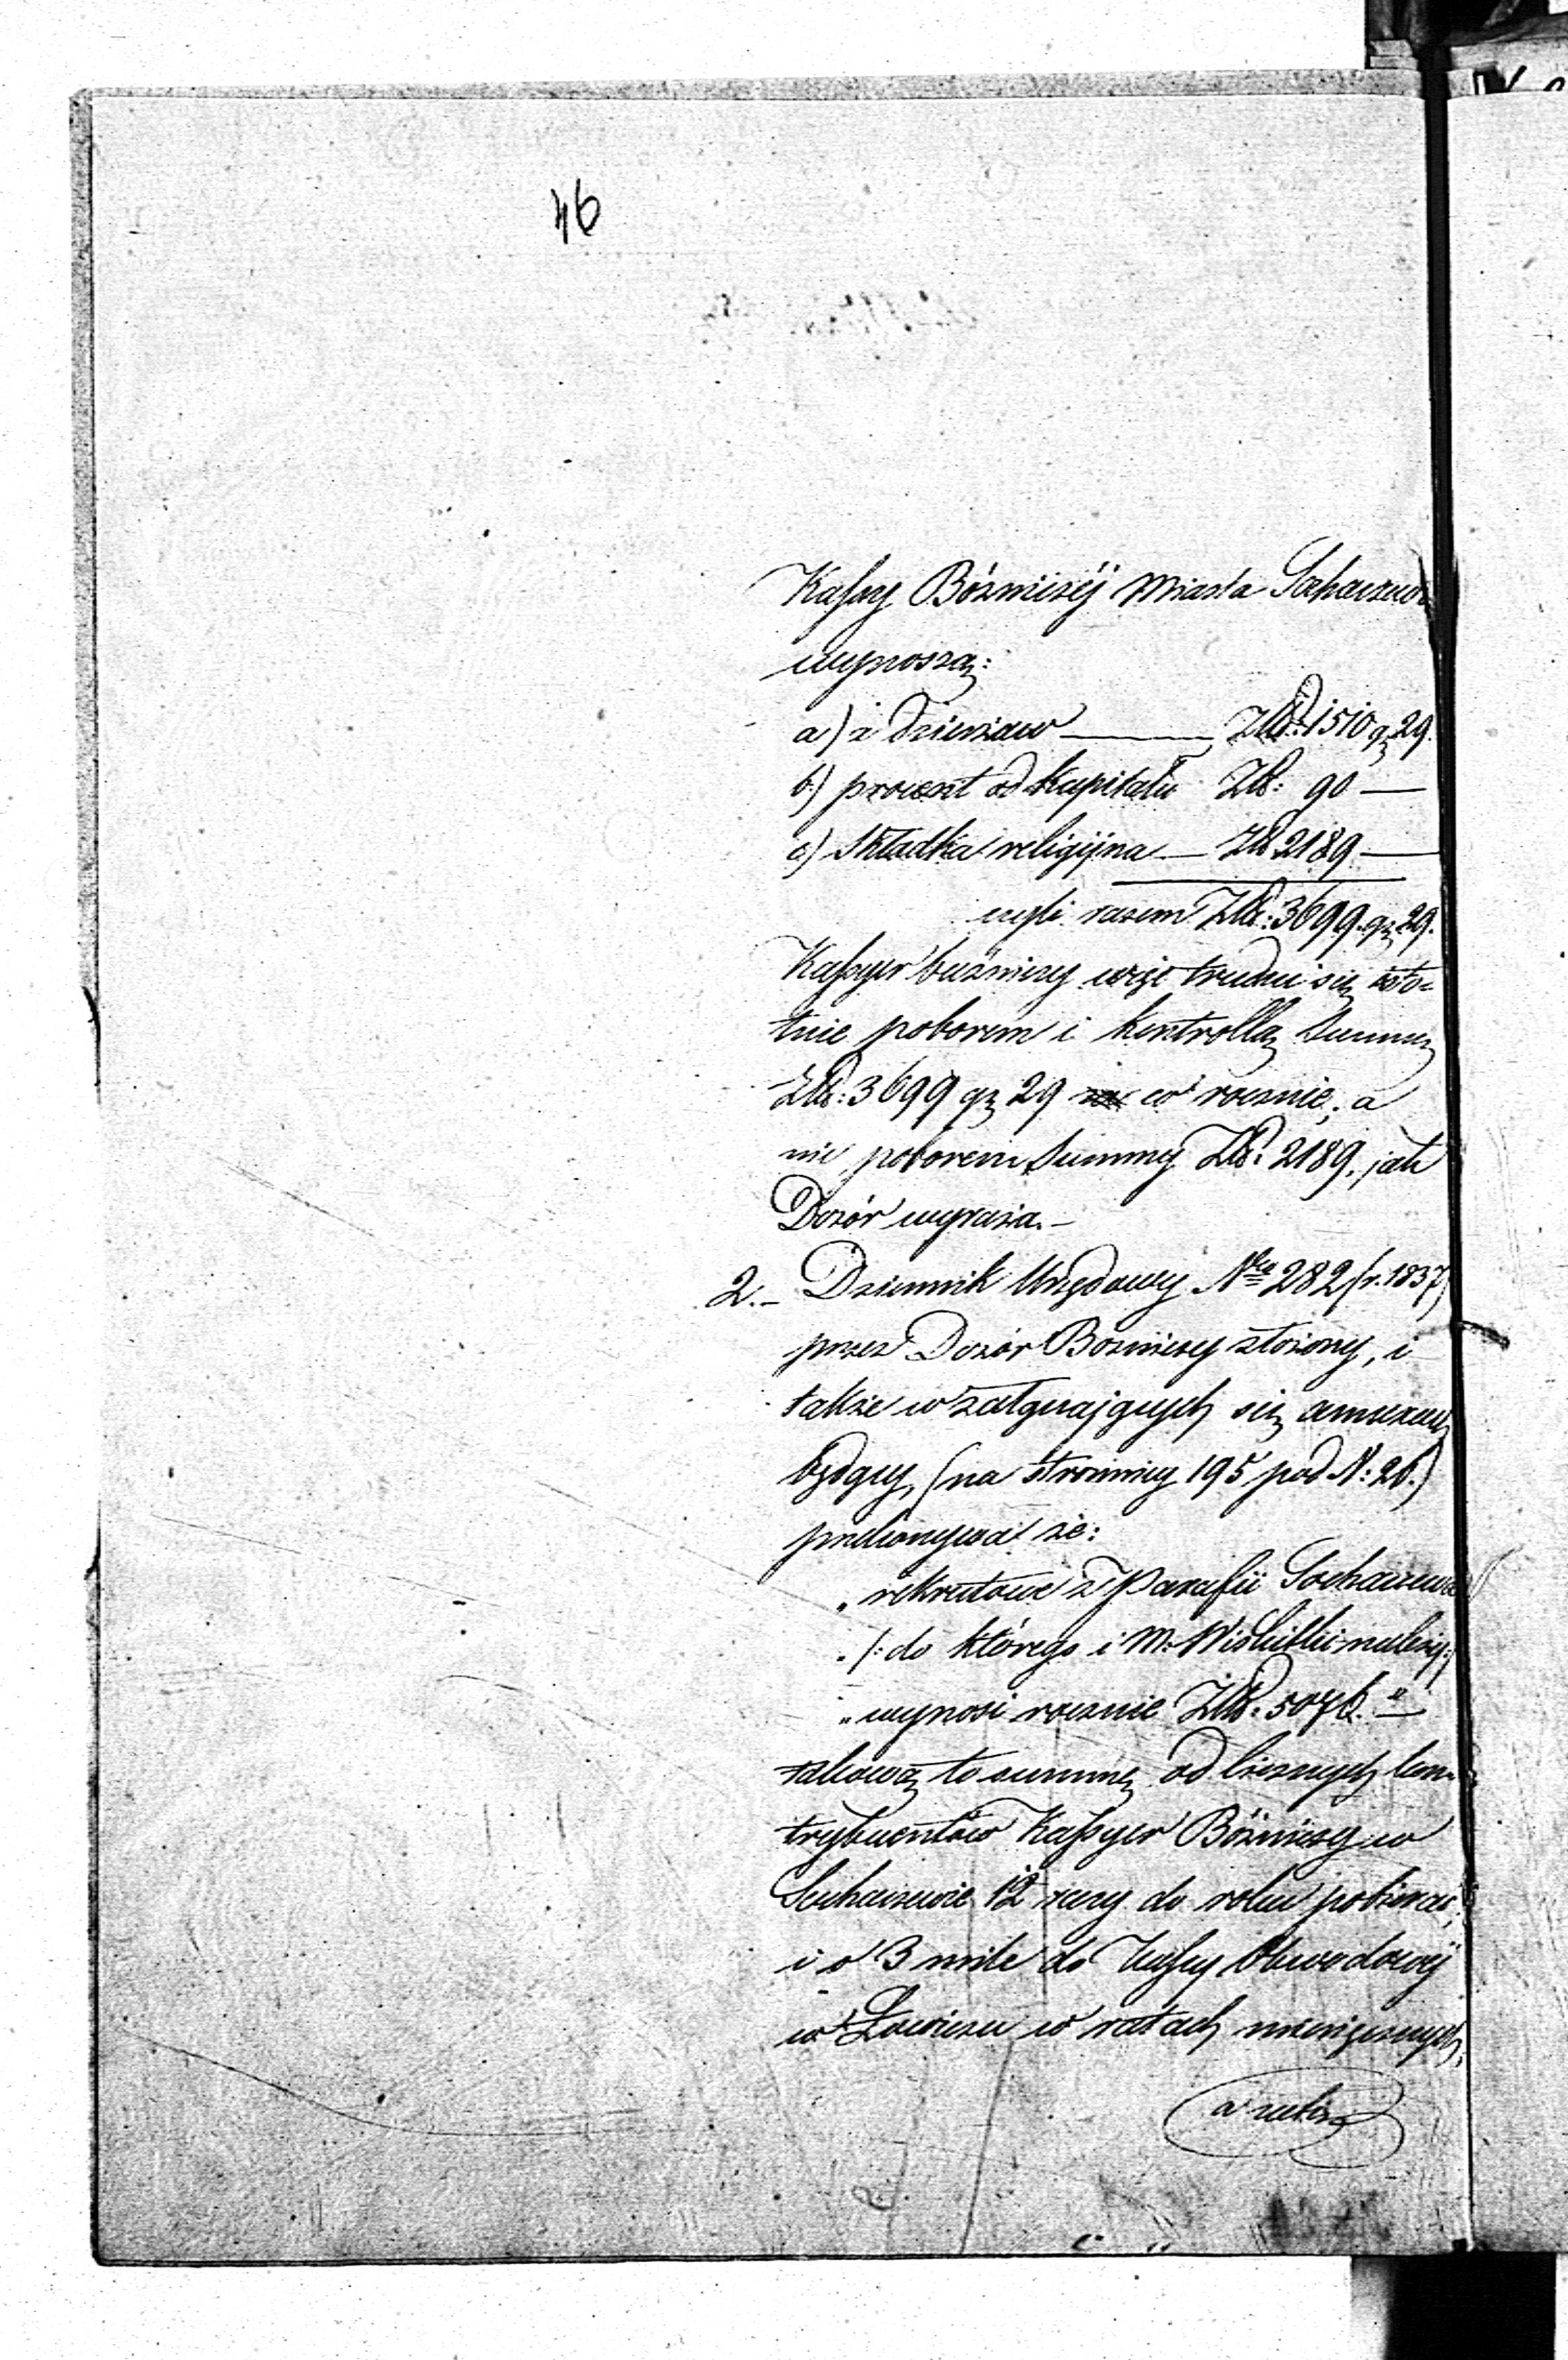 46
Kassy Bóżniczéj Miasta Sochaczewa
wynoszą:
a) z dzierżaw — Złp: 1510 gr 29.
b) procent od kapitału Złp: 90 —
c) Składka religijna — Złp 2189 —
czyli razem Złp: 3699. gr 29.
Kassyer bużniczy więc trudni się isto-
tnie poborem i kontrollą Summy
Złp: 3699 gr 29 co rocznie; a
nie poborem Summy Złp: 2189, jak
Dozór wyraża. –
2. – Dziennik Urzędowy Nro 282 (r. 1837)
przez Dozór Bozniczy złożony, i
także w załączających się
będący, (na stronnicy 195 pod N: 26.)
przekonywa że:
„rekrutowe z Parafii Sochaczewa
„/: do którego i M. Wiskitki należy :/
„wynosi rocznie Złp: 5076. "
takową to summę od licznych kon-
trybuentów Kassyer Bóżniczy w
Sochaczewie 12 razy do roku pobierać,
i o 3 mile do Kassy Obwodowéj
w Łowiczu w ratach miesięcznych,
a